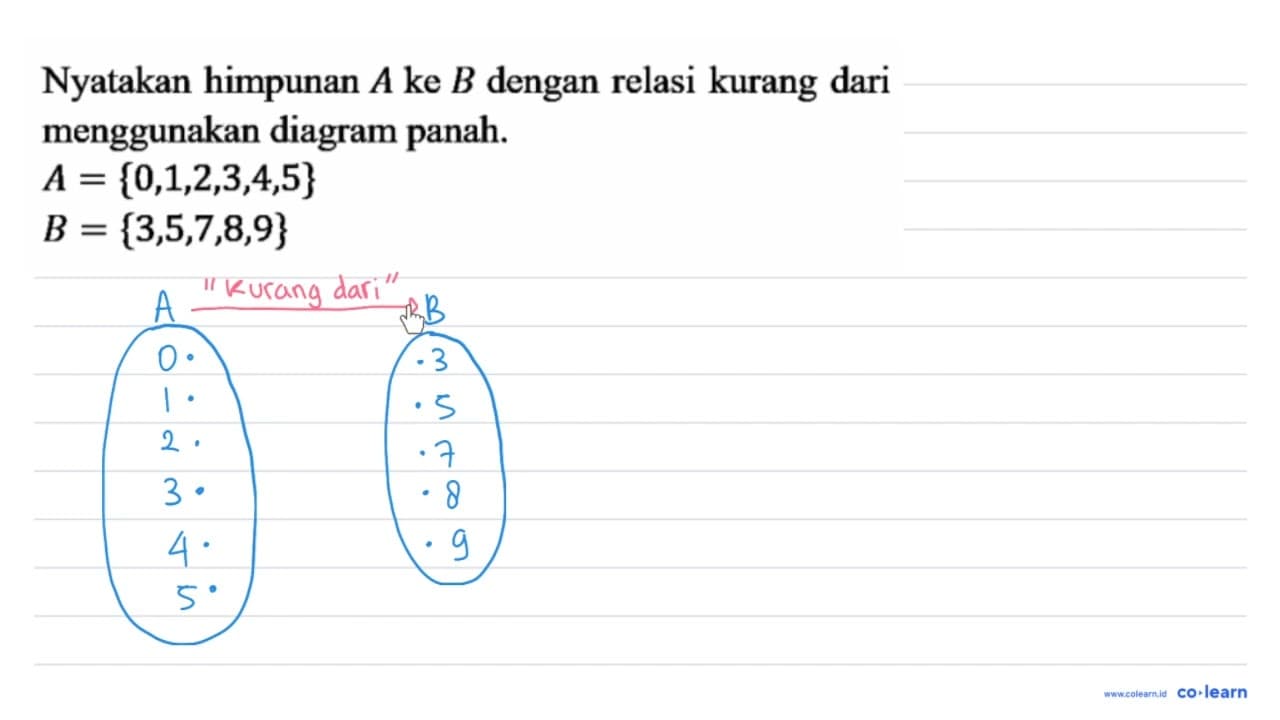 Nyatakan himpunan A ke B dengan relasi kurang dari
menggunakan diagram panah.
A = {0,1,2,3,4,5}
B = {3,5,7,8,9}
"Kurang dari"
A B
0 3
1 5
2 7
3 8
4 9
5
www.colearn.id co-learn